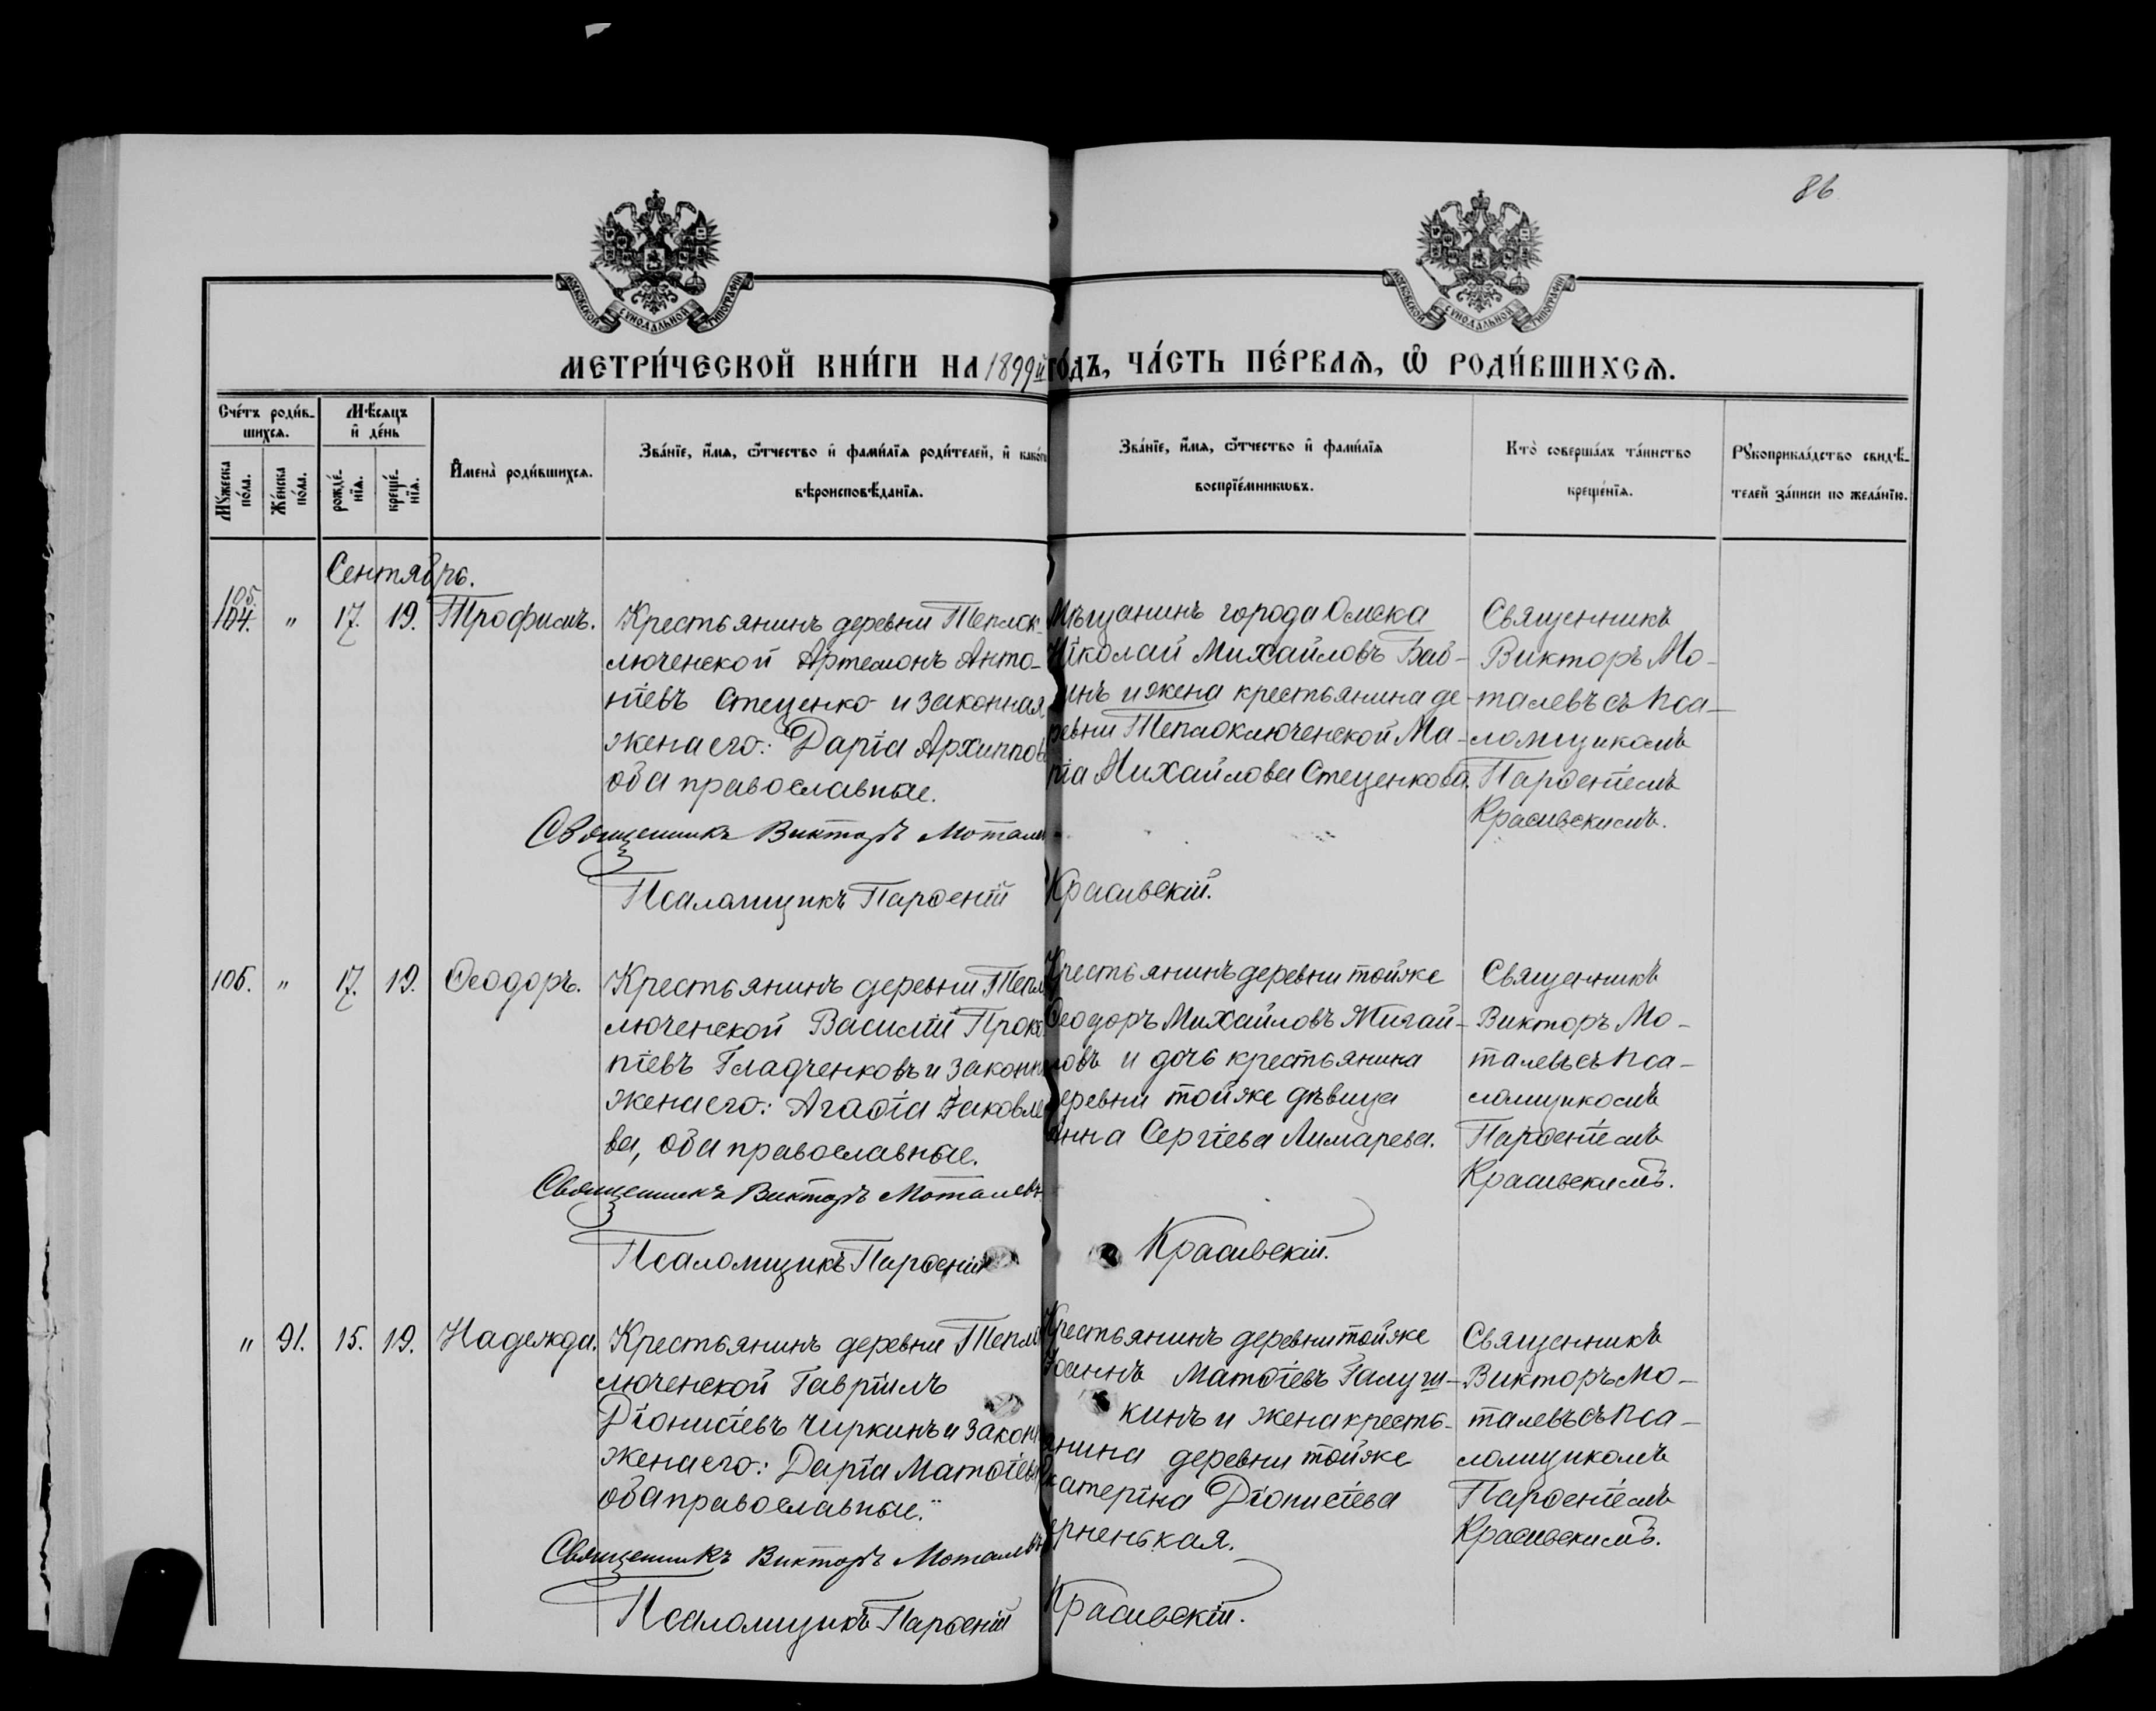 86
МОСКОВСКОЙ СѴНОДАЛЬНОЙ ТИПОГРАФІИ
МОСКОВСКОЙ СѴНОДАЛЬНОЙ ТИПОГРАФІИ
МЕТРИ́ЧЕСКОЙ КНИ́ГИ НА 1899й ГО́ДЪ, ЧА́СТЬ ПЕ́РВАѦ, Ѡ҆ РОДИ́ВШИХСѦ.
Сче́тъ роди́в-
шихсѧ.
Мѣ́сѧцъ
и҆ де́нь
Мꙋжеска по́ла.
Же́нска по́ла.
рожде́-нїѧ.
креще́-нїѧ.
И҆мена̀ роди́вшихсѧ.
Зва́нїе, и҆́мѧ, ѻ҆́тчество и҆ фами́лїѧ роди́телей, и҆ како́гѡ
вѣроисповѣ́данїѧ.
Зва́нїе, и҆́мѧ, ѻ҆́тчество и҆ фами́лїѧ
воспрїе́мникѡвъ.
Кто̀ соверша́лъ та́инство
креще́нїѧ.
Рꙋкоприкла́дство свидѣ́-
телей за́писи по жела́нїю.
Сентябрь.
105.
104. " 17. 19. Трофимъ.
Крестьянинъ деревни Теплок-
люченской Артемонъ Анто-
ніевъ Стеценко и законная
жена его: Дарія Архиппов
оба православные.
Священникъ Викторъ Мотале
Псаломщикъ Парѳеній Красивскій.
Мѣщанинъ города Омска
Николай Михайловъ Баб-
инъ и жена крестьянина де-
ревни Теплоключенской Ма-
рія Михайлова Стеценкова.
Священникъ
Викторъ Мо-
талевъ съ пса-
ломщикомъ
Парѳеніемъ
Красивскимъ.
106. " 17. 19. Ѳеодоръ.
Крестьянинъ деревни Тепл
люченской Василій Проко
піевъ Гладченковъ и законн
жена его: Агаѳія Іаковле
ва, оба православные.
Священникъ Викторъ Моталевъ
Псаломщикъ Парѳеній Красивскій.
Крестьянинъ деревни тойже
Ѳеодоръ Михайловъ Жигай-
ловъ и дочь крестьянина
деревни тойже дѣвица
Анна Сергіева Лимарева.
Священникъ
Викторъ Мо-
талевъ съ пса-
ломщикомъ
Парѳеніемъ
Красивскимъ.
" 91. 15. 19. Надежда.
Крестьянинъ деревни Тепл
люченской Гавріилъ
Діонисіевъ Чиркинъ и закон
жена его: Дарія Матѳіев
оба православные."
Священникъ Викторъ Моталевъ
Псаломщикъ Парѳеній Красивскій.
Крестьянинъ деревни тойже
Іоаннъ Матѳіевъ Галуш-
кинъ и жена кресть-
янина деревни тойже
катеріна Діонисіева
ерненькая.
Священникъ
Викторъ Мо-
талевъ съ пса-
ломщикомъ
Парѳеніемъ
Красивскимъ.